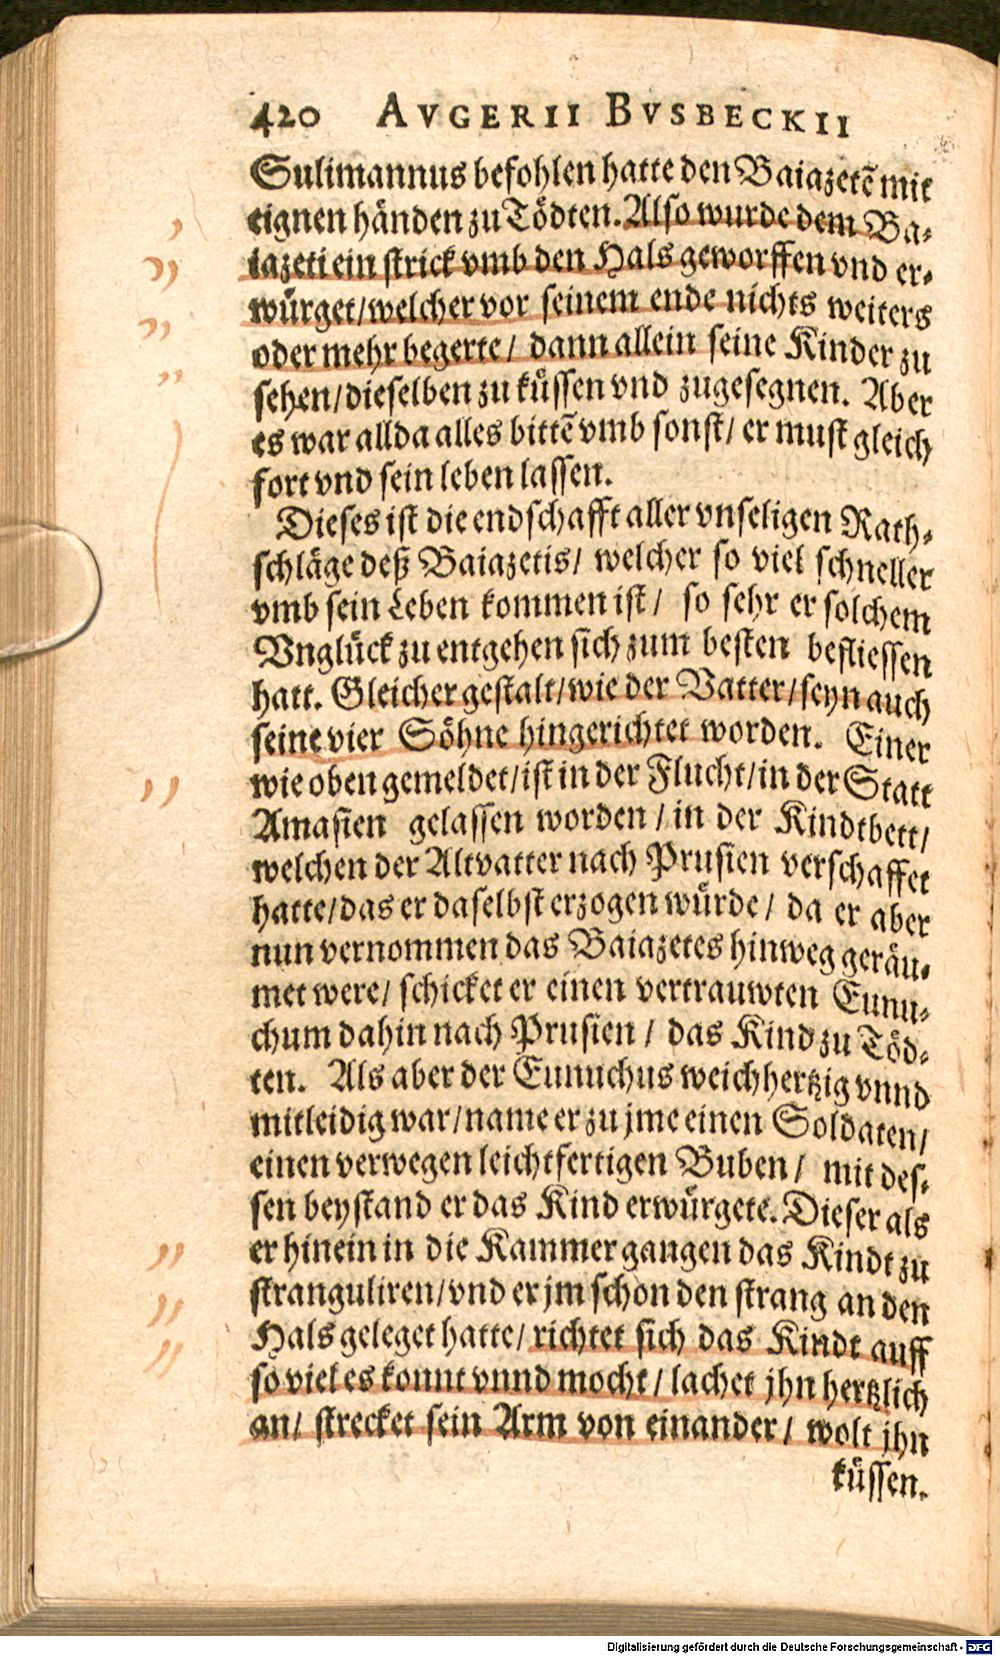 420 AVGERII BVSBECKII
Sulimannus befohlen hatte den Baiazetẽ mit
eignen händen zu Tödten. Also wurde dem Ba⸗
iazeti ein strick vmb den Hals geworffen vnd er⸗
würget/welcher vor seinem ende nichts weiters
oder mehr begerte/ dann allein seine Kinder zu
sehen/dieselben zu küssen vnd zugesegnen. Aber
es war allda alles bittẽ vmb sonst/ er must gleich
fort vnd sein leben lassen.
Dieses ist die endschafft aller vnseligen Rath⸗
schläge deß Baiazetis/ welcher so viel schneller
vmb sein Leben kommen ist/ so sehr er solchem
Vnglück zu entgehen sich zum besten befliessen
hatt. Gleicher gestalt/wie der Vatter/seyn auch
seine vier Söhne hingerichtet worden. Einer
wie oben gemeldet/ist in der Flucht/in der Statt
Amasien gelassen worden/in der Kindtbett/
welchen der Altvatter nach Prusien verschaffet
hatte/das er daselbst erzogen würde/ da er aber
nun vernommen das Baiazetes hinweg geräu⸗
met were/ schicket er einen vertrauwten Eunu⸗
chum dahin nach Prusien/ das Kind zu Töd⸗
ten. Als aber der Eunuchus weichhertzig vnnd
mitleidig war/name er zu jme einen Soldaten/
einen verwegen leichtfertigen Buben/ mit des⸗
sen beystand er das Kind erwürgete. Dieser als
er hinein in die Kammer gangen das Kindt zu
stranguliren/vnd er jm schon den strang an den
Hals geleget hatte/richtet sich das Kindt auff
so viel es konnt vnnd mocht/lachet jhn hertzlich
an/ strecket sein Arm von einander/ wolt jhn
küssen.
Digitalisierung gefördert durch die Deutsche Forschungsgemeinschaft - DFG